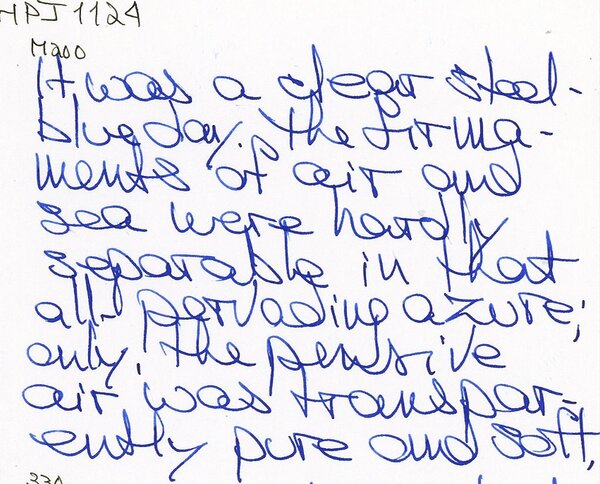 HPJ 1124
M200
It was a clear steel-
blue day. The firma-
ments of air and
sea were hardly
separable in that
all-pervading azure;
only, the pensive
air was transpar-
ently pure and soft,
330